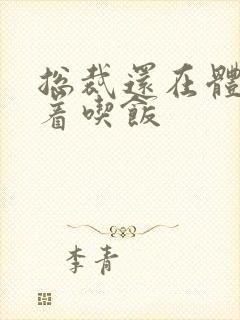 總裁還在體
着喫飯
李青